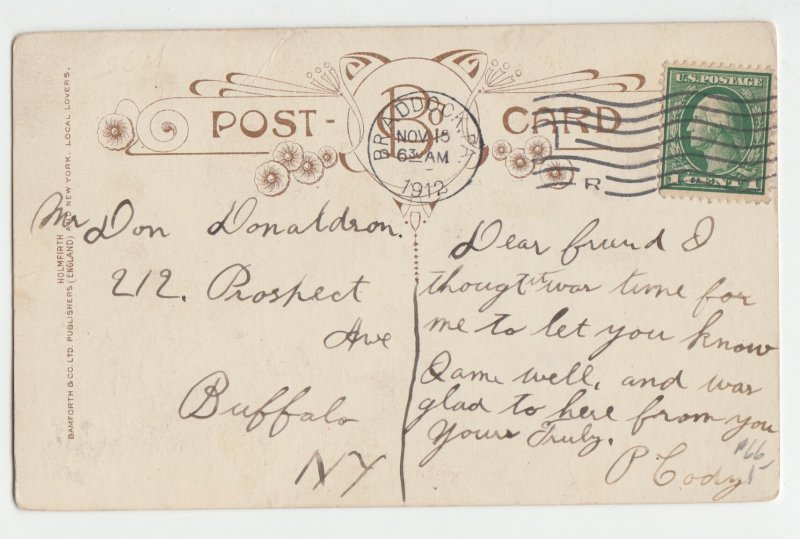 POST- CARD
B & Co
BRADDOCK, PA.
NOV 15
630 AM
1912
R
U.S. POSTAGE
1 CENT 1
HOLMFIRTH NEW YORK. LOCAL LOVERS.
BAMFORTH & CO. LTD. PUBLISHERS (ENGLAND)
Mr Don Donaldson.
212. Prospect
Ave
Buffalo
NY
Dear friend I
thougt it was time for
me to let you know
I ame well, and was
glad to here from you
Yours Truly.
P Cody